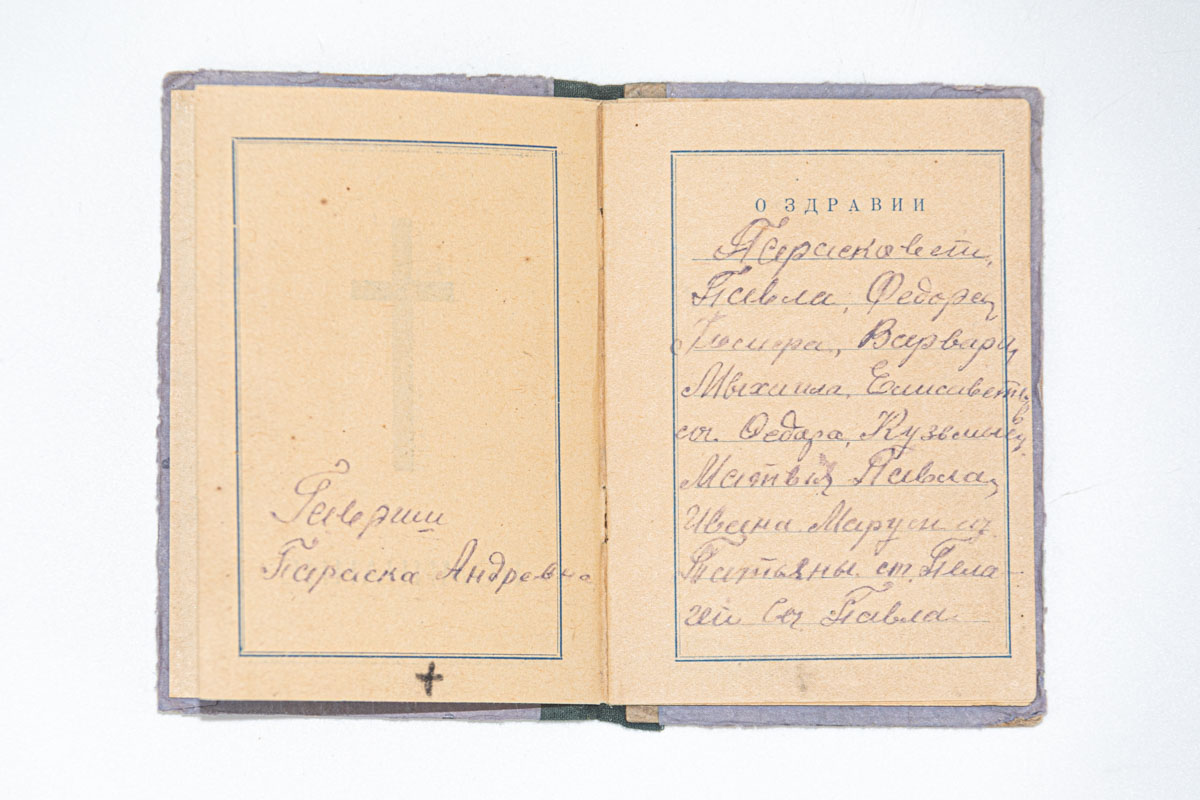 Гаверши
Параска Андревна
О ЗДРАВИИ
Парасковети,
Павла, Федора,
Варвары,
Мыхаила, Елисаветы,
Федора, Кузьмы
Матвея Павла,
Ивана Маруси
Татьяны. ст. Пела-
геи Павла